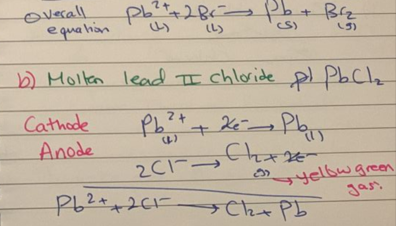 Overall equation Pb²⁺ + 2Br⁻ → Pb + Br₂
(l) (l) (s) (g)
b) Molten lead II chloride PbCl₂
Cathode Pb²⁺ + 2e⁻ → Pb
(l) (l)
Anode 2Cl⁻ → Cl₂ + 2e⁻
(g) → yellow green gas.
Pb²⁺ + 2Cl⁻ → Cl₂ + Pb